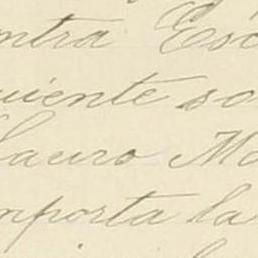 ontra Esc
uiente so
lauro Mo
mporta la